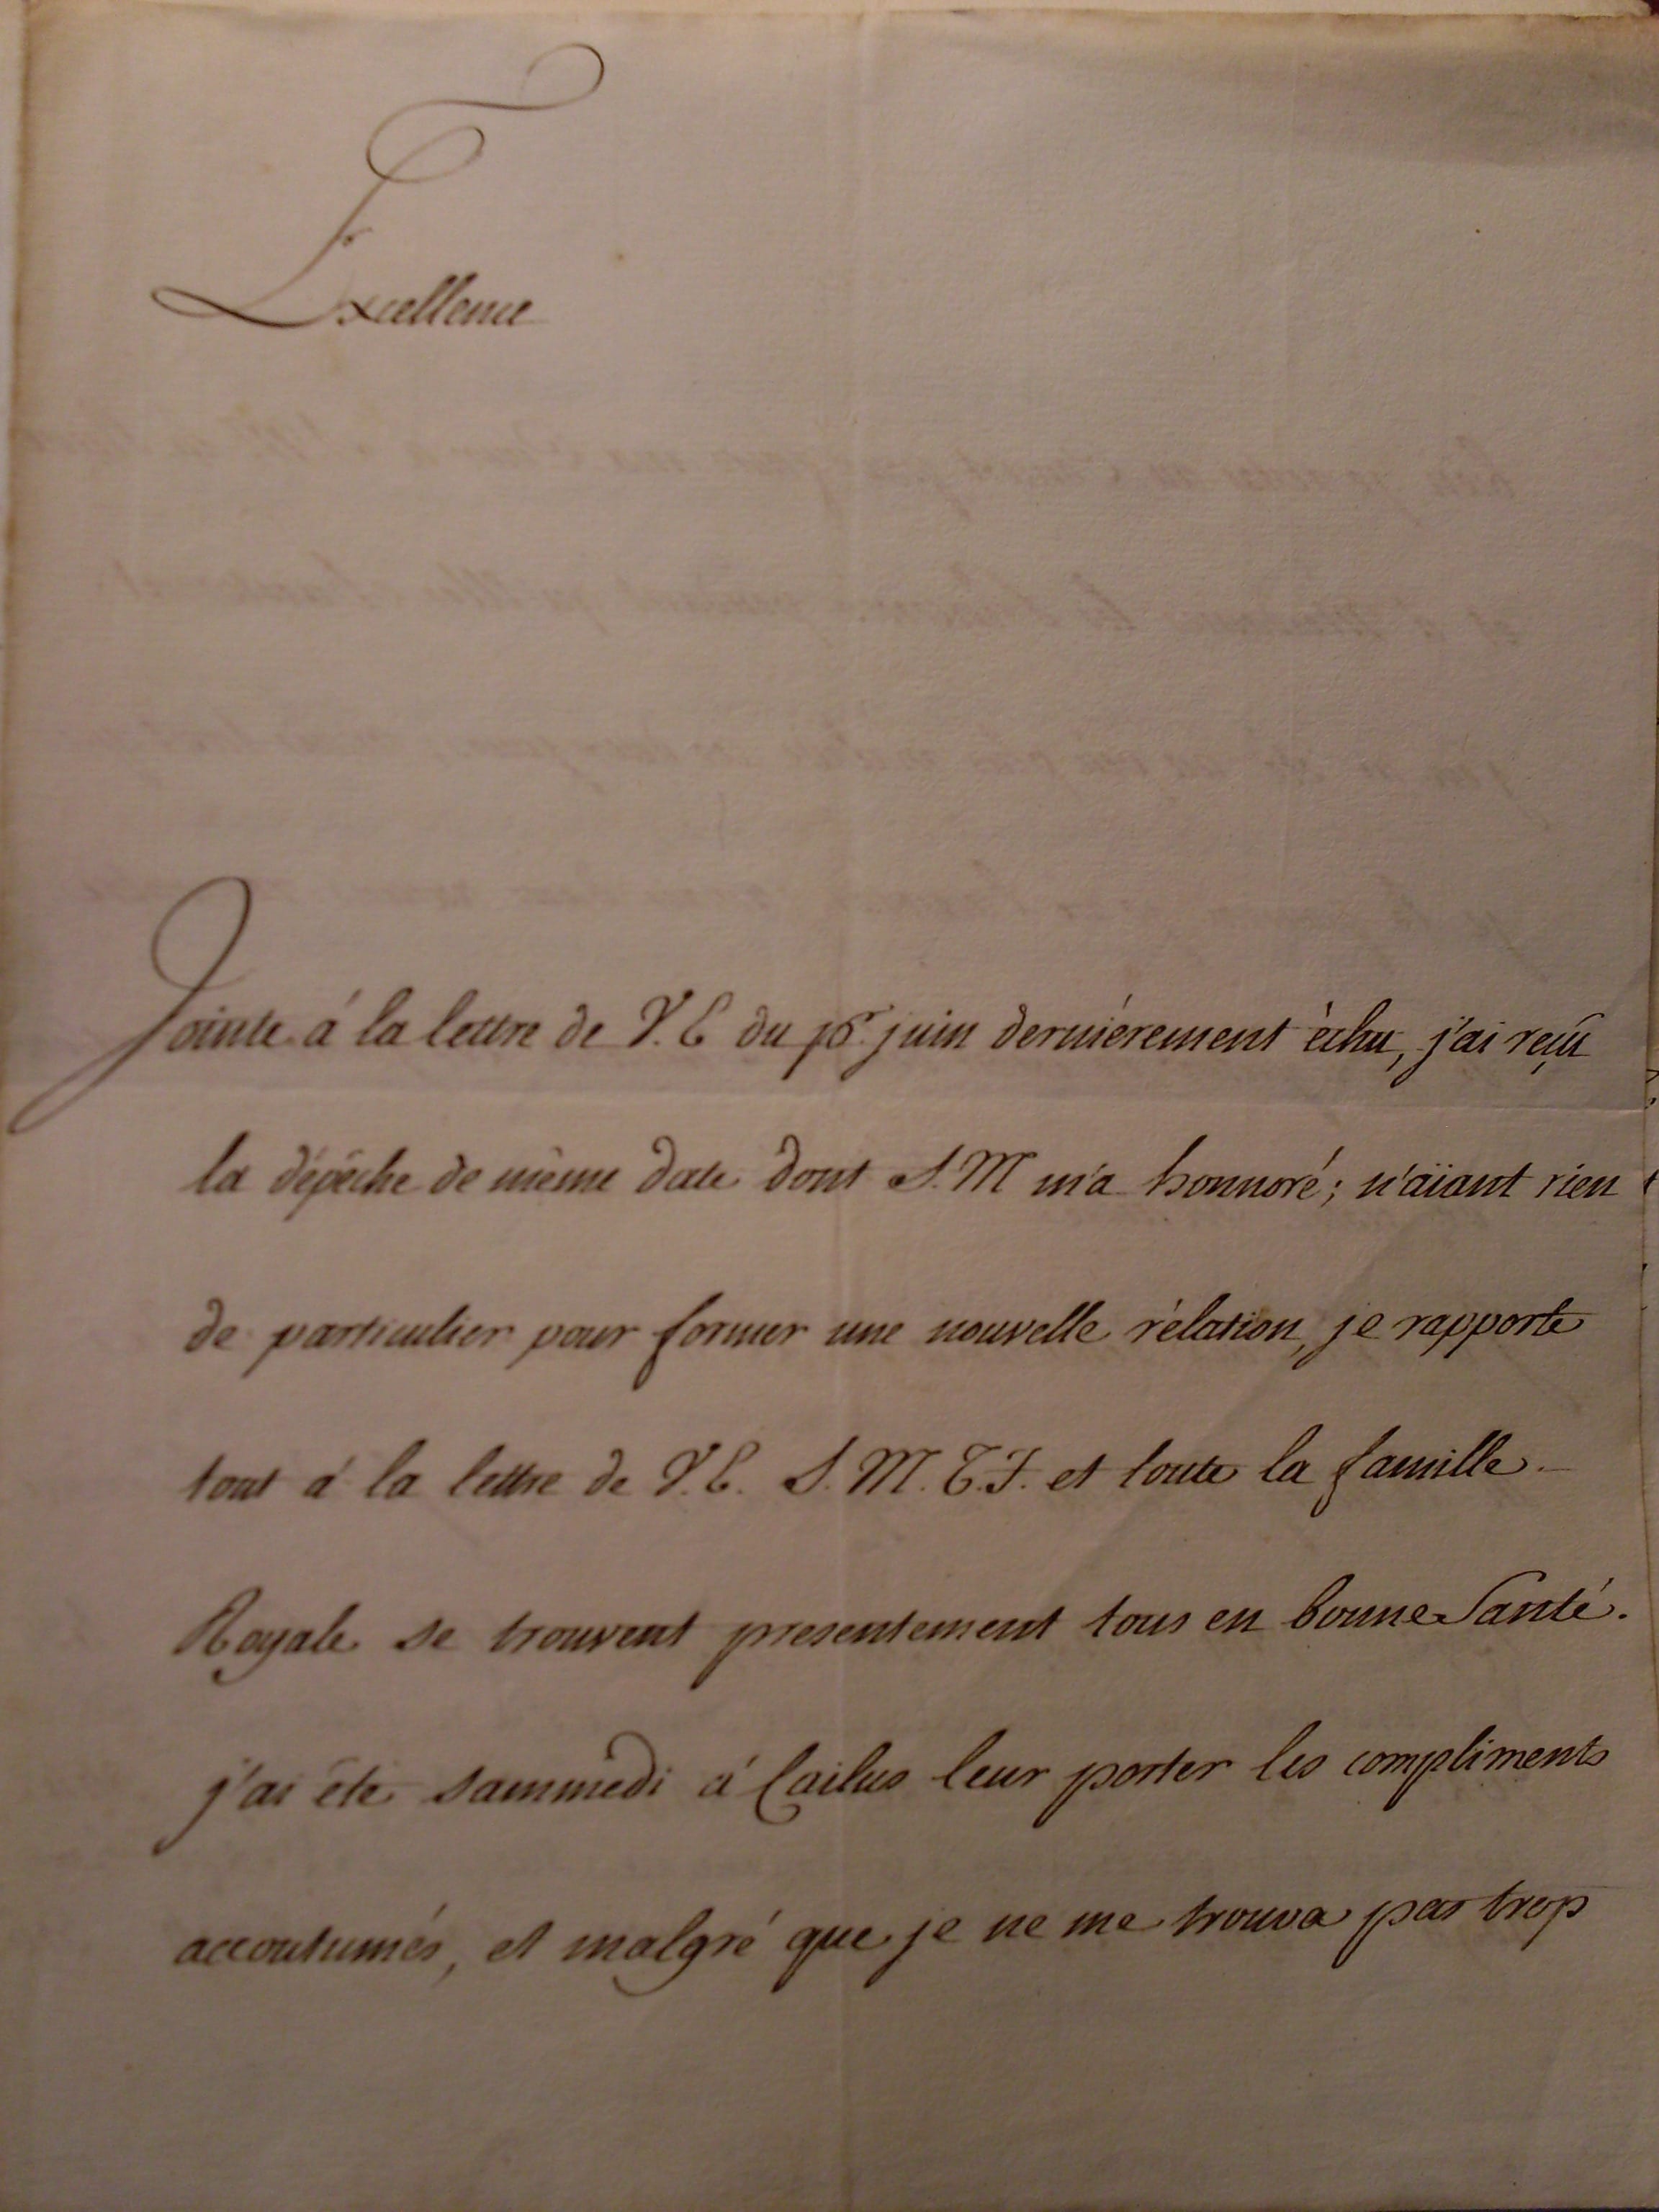 Excellence
Jointe á la lettre de V. E du juin derniérement èchu, j'ai reçu
la dépêche de même date dont S. M m'a honnoré; n'aïant rien
de particulier pour former une nouvelle rélation, je rapporte
tout á la lettre de V. E. S. M. T. F. et toute la famille
Royale se trouvent presentement tous en bonne Santé.
j'ai été sammedi á Cailus leur porter les compliments
accoutumés, et malgré que je ne me trouva pas trop